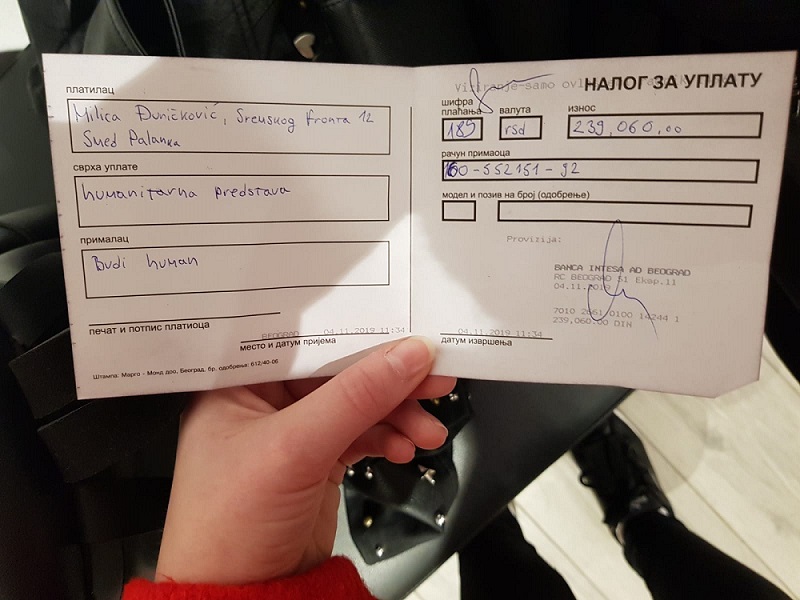 платилац
Milica Đuričković, Sremskog fronta 12
Smed Palanka
сврха уплате
humanitarna predstava
прималац
Budi human
печат и потпис платиоца
BEOGRAD 04.11.2019 11:34
место и датум пријема
Штампа: Марго - Монд доо, Београд, бр. одобрења: 612/40-06
Viziranje-samo ovl
НАЛОГ ЗА УПЛАТУ
шифра плаћања
валута
износ
189
rsd
239,060,00
рачун примаоца
160-552151-92
модел и позив на број (одобрење)
Provizija:
BANCA INTESA AD BEOGRAD
RC BEOGRAD S1 Eksp.11
04.11.2019
7010 2861 0100 14244 1
239,060.00 DIN
04.11.2019 11:34
датум извршења